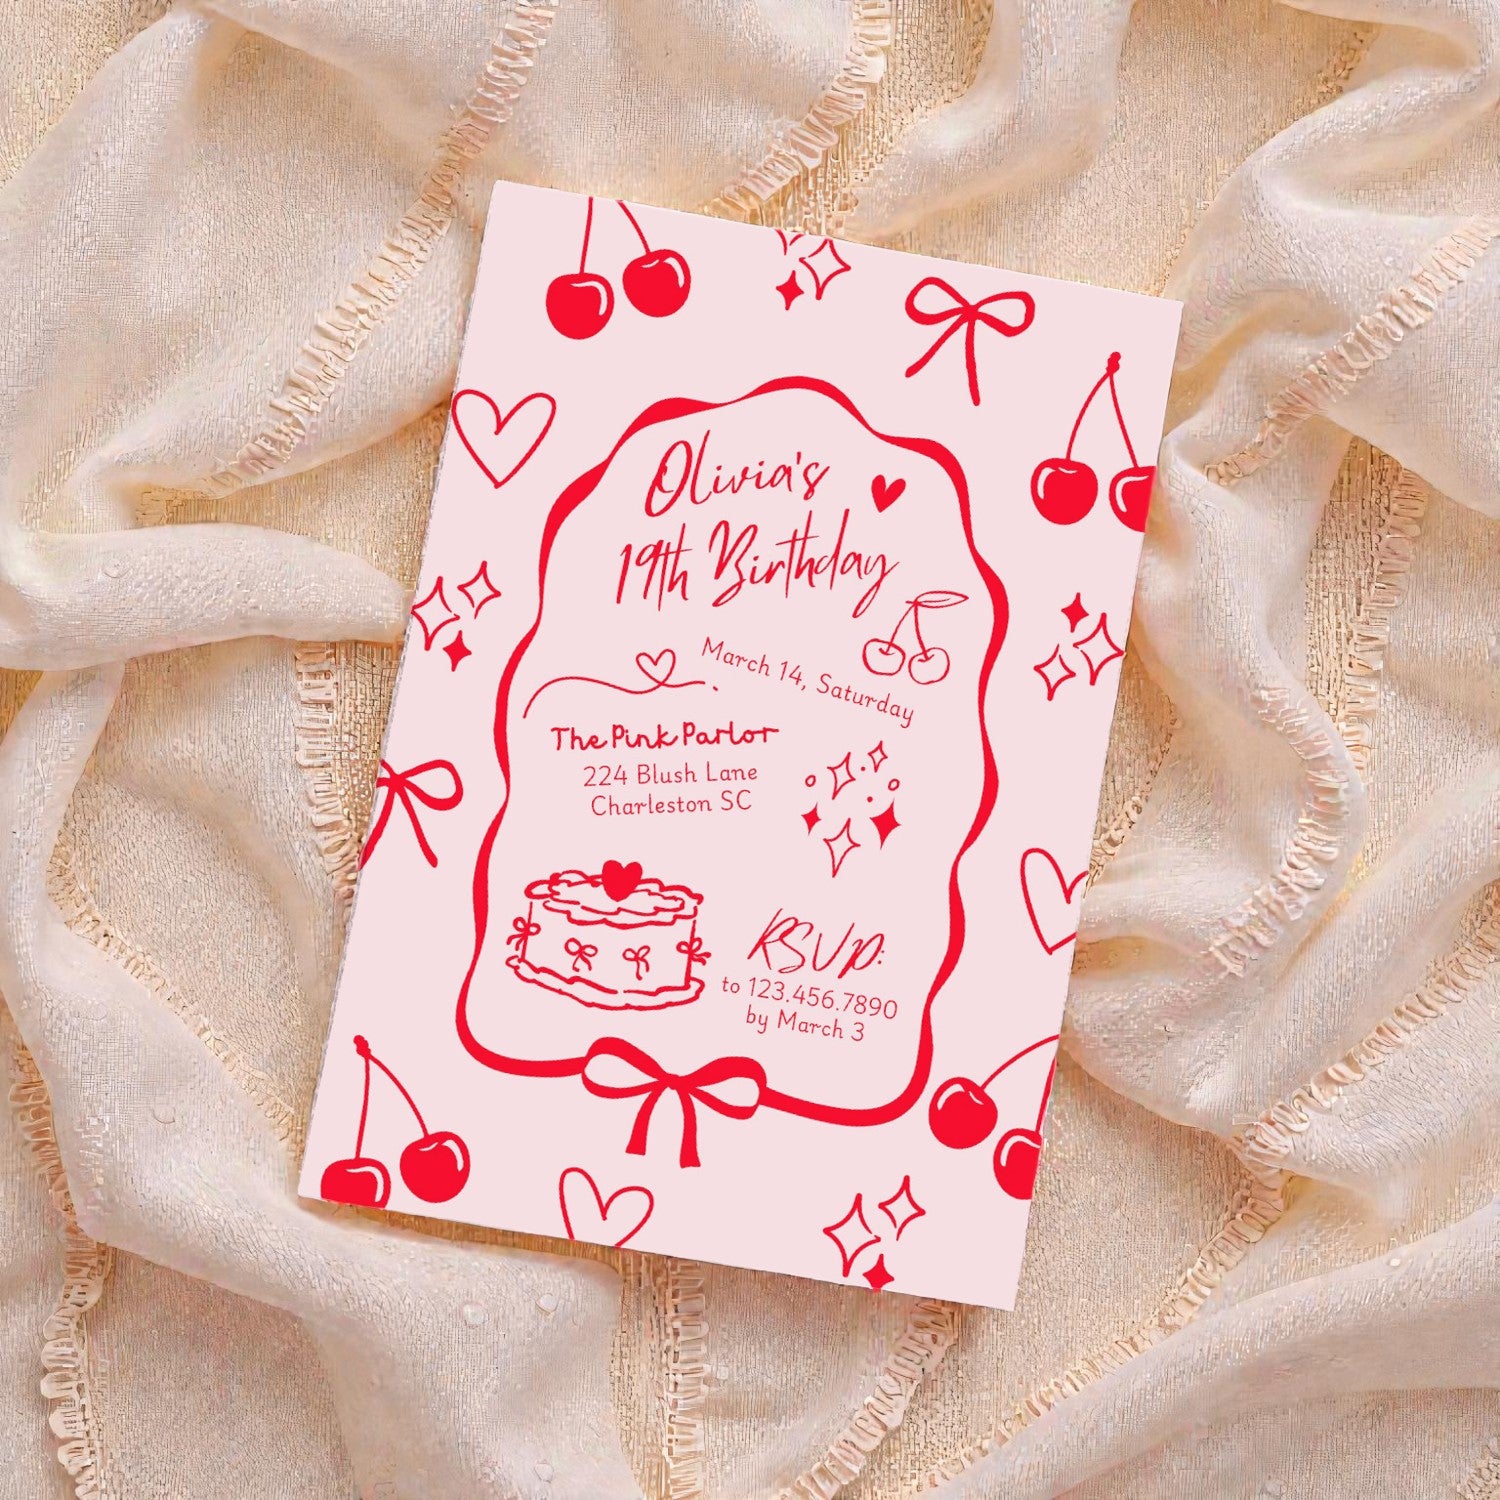 Olivia's
19th Birthday
March 14, Saturday
The Pink Parlor
224 Blush Lane
Charleston SC
RSVP:
to 123.456.7890
by March 3